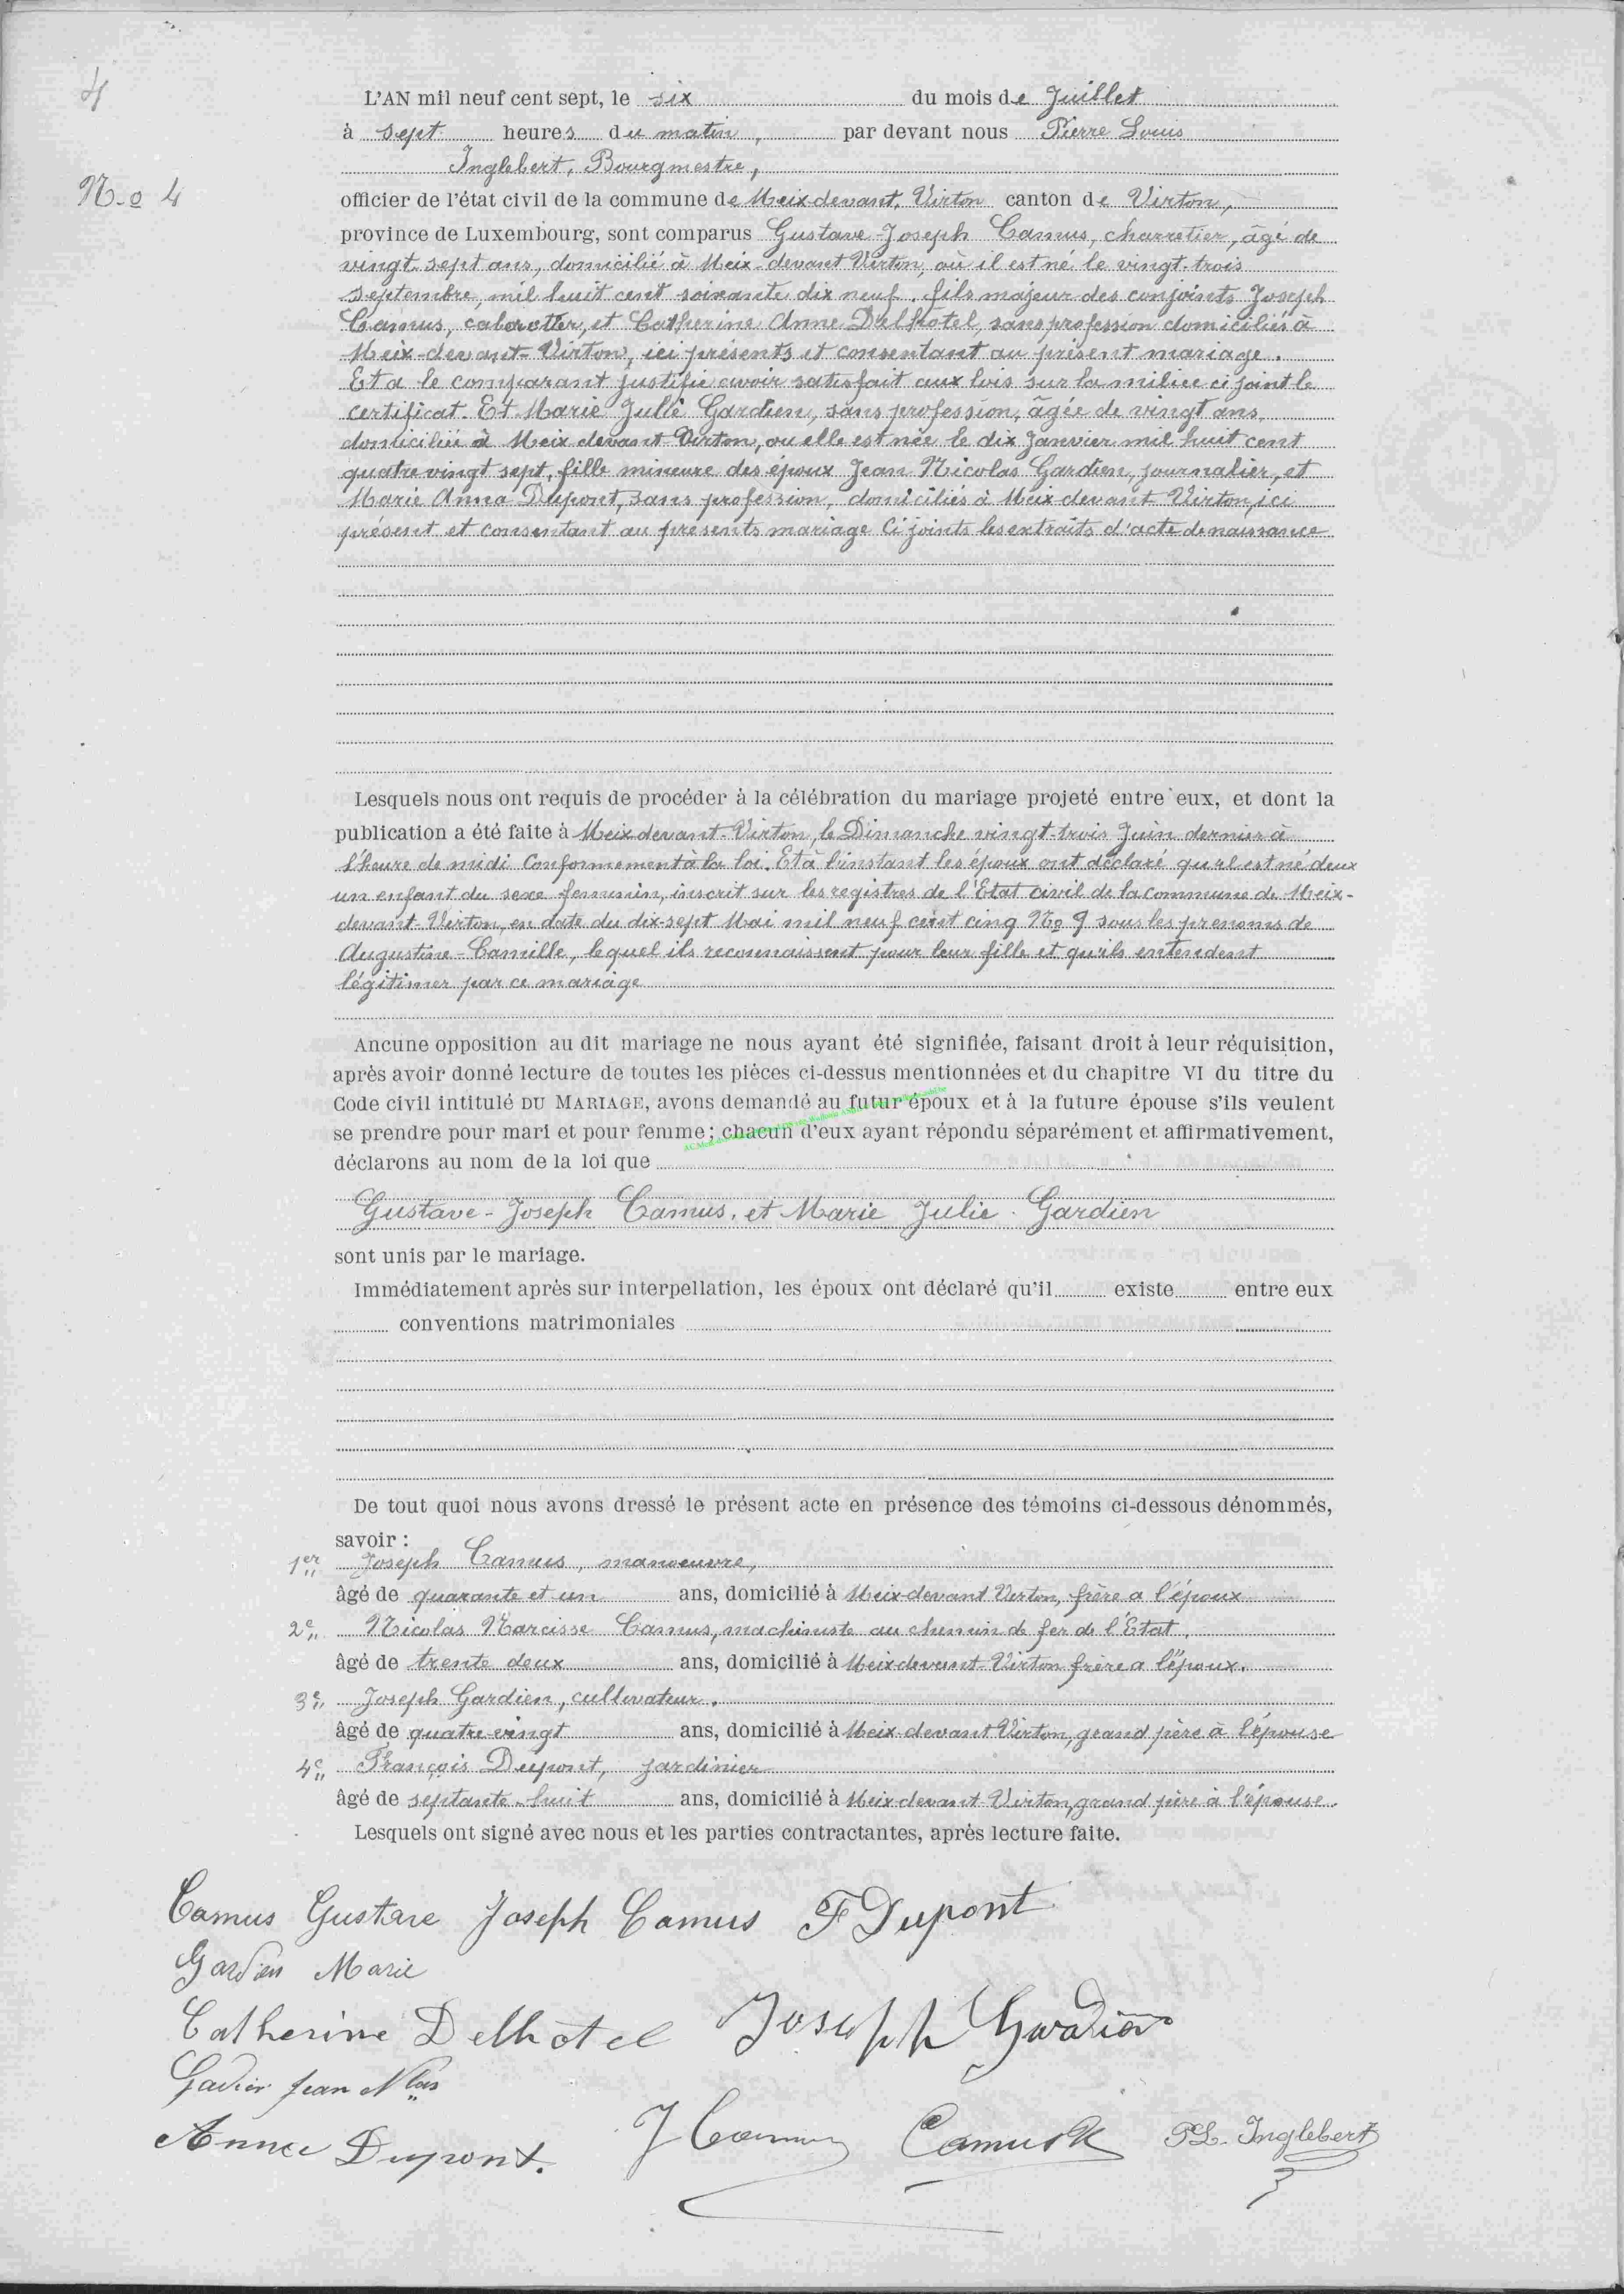 4
L'AN mil neuf cent sept, le six du mois de Juillet
à sept heures du matin, par devant nous Pierre Louis
Inglebert, Bourgmestre,
N.o 4
officier de l'état civil de la commune de Meix-devant-Virton canton de Virton,
province de Luxembourg, sont comparus Gustave-Joseph Camus, charretier, âgé de
vingt-sept ans, domicilié à Meix-devant Virton, où il est né le vingt-trois
Septembre, mil huit cent soixante dix neuf, fils majeur des conjoints Joseph
Camus, cabaretier, et Catherine Anne Delhotel, sans profession domiciliés à
Meix-devant-Virton, ici présents et consentant au présent mariage.
Et a le comparant justifié avoir satisfait aux lois sur la milice ci joint le
certificat. Et Marie Julie Gardien, sans profession, âgée de vingt ans
domiciliée à Meix devant Virton, ou elle est née le dix Janvier mil huit cent
quatre vingt sept, fille mineure des époux Jean Nicolas Gardien, journalier, et
Marie Anna Dupont, sans profession, domiciliés à Meix-devant Virton, ici
présent et consentant au presents mariage Ci joints les extraits d'acte de naissance
Lesquels nous ont requis de procéder à la célébration du mariage projeté entre eux, et dont la
publication a été faite à Meix devant-Virton, le Dimanche vingt-trois Juin dernier à
l'heure de midi Conformement à la loi. Et à l'instant les époux ont déclaré qu'il est né deux
un enfant du sexe femunin, inscrit sur les registres de l'Etat civil de la commune de Meix-
devant-Virton, en date du dix-sept Mai mil neuf cent cinq No 9 sous les prenoms de
Augustine-Camille, lequel ils reconnaissent pour leur fille et qu'ils entendent
légitimer par ce mariage
Aucune opposition au dit mariage ne nous ayant été signifiée, faisant droit à leur réquisition,
après avoir donné lecture de toutes les pièces ci-dessus mentionnées et du chapitre VI du titre du
Code civil intitulé DU MARIAGE, avons demandé au futur époux et à la future épouse s'ils veulent
se prendre pour mari et pour femme; chacun d'eux ayant répondu séparément et affirmativement,
déclarons au nom de la loi que
Gustave-Joseph Camus, et Marie Julie Gardien
sont unis par le mariage.
Immédiatement après sur interpellation, les époux ont déclaré qu'il existe entre eux
conventions matrimoniales
De tout quoi nous avons dressé le présent acte en présence des témoins ci-dessous dénommés,
savoir :
1er Joseph Camus, manoeuvre,
âgé de quarante et un ans, domicilié à Meix-devant Virton, frère a l'époux
2e Nicolas Narcisse Camus, machiniste au chemin de fer de l'Etat.
âgé de trente deux ans, domicilié à Meix devant-Virton frère a l'époux.
3e Joseph Gardien, cultivateur.
âgé de quatre-vingt ans, domicilié à Meix-devant Virton, grand père à l'épouse
4e François Dupont, jardinier
âgé de septante-huit ans, domicilié à Meix devant-Virton, grand père à l'épouse.
Lesquels ont signé avec nous et les parties contractantes, après lecture faite.
Camus Gustave Joseph Camus F Dupont
Gardien Marie
Catherine Delhotel Joseph Gardien
Gardien Jean Nlas
Anna Dupont. J Camus Camus N PL. Inglebert